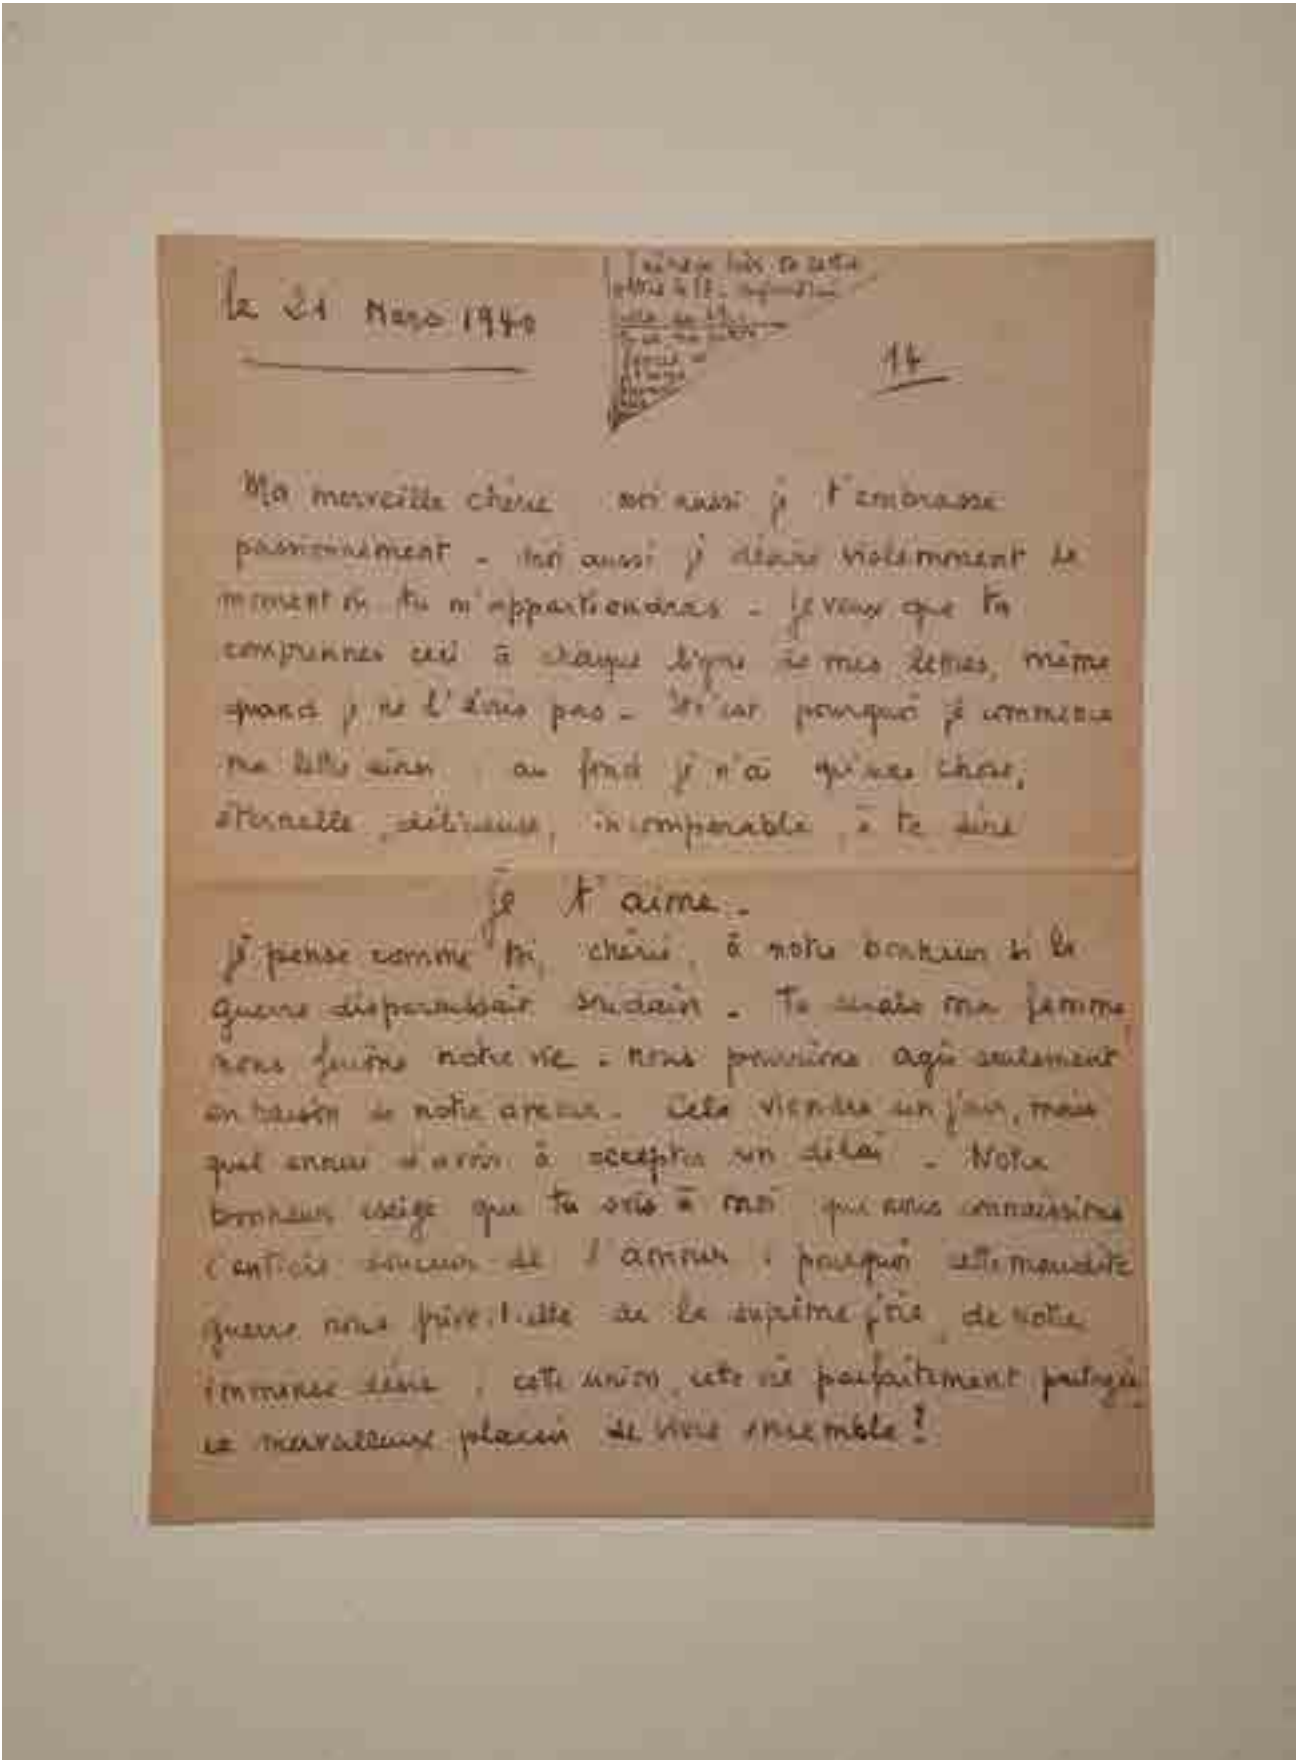 le 21 Mars 1940
14
Ma merveille chérie moi aussi je t'embrasse
passionnément - moi aussi je désire violemment le
moment où tu m'appartiendras - je veux que tu
comprennes ceci à chaque ligne de mes lettres, même
quand je ne l'écris pas - c'est pourquoi je commence
ma lettre ainsi : au fond je n'ai qu'une chose,
éternelle, délicieuse, incomparable, à te dire
je t'aime -
je pense comme toi, chérie, à notre bonheur si la
guerre disparaissait soudain - Tu serais ma femme,
nous ferions notre vie - nous pourrions agir seulement
en raison de notre amour - Cela viendra un jour, mais
quel ennui d'avoir à accepter un délai - Notre
bonheur exige que tu sois à moi que nous connaissions
l'entière douceur de l'amour : pourquoi cette maudite
guerre nous prive-t-elle de la suprême joie, de notre
immense désir : cette union, cette vie parfaitement partagée
ce merveilleux plaisir de vivre ensemble !